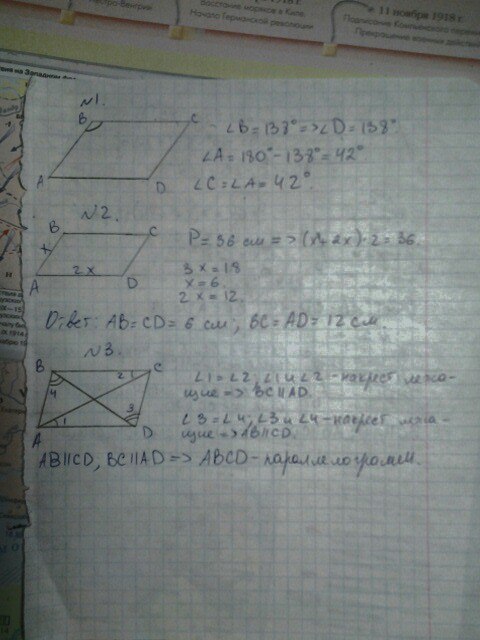 11 ноября 1918 г.
Восстание моряков в Киле
Начало Германской революции
Подписание Компьенского перемирия
Прекращение военных действий
№1.
B C
A D
∠B = 138° => ∠D = 138°.
∠A = 180° - 138° = 42°
∠C = ∠A = 42°.
№2.
B C
x
A 2x D
P = 36 см => (x + 2x) · 2 = 36.
3x = 18
x = 6.
2x = 12.
Ответ: AB = CD = 6 см; BC = AD = 12 см.
№3.
B C
4 2
1 3
A D
∠1 = ∠2, ∠1 и ∠2 - накрест лежа-
щие => BC||AD.
∠3 = ∠4, ∠3 и ∠4 - накрест лежа-
щие => AB||CD.
AB||CD, BC||AD => ABCD - параллелограмм.